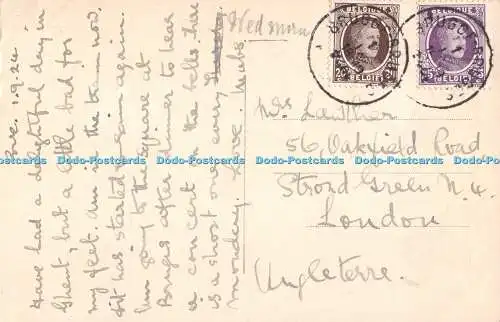 Bre. 1.9.24.
Have had a delightful day in
Ghent, but a little bad for
my feet. Am in the train now.
It has started to rain again.
Am going to the square at
Bruges after dinner to hear
a concert on the bells. There
is a short one every
Monday. Love.
Wed morn
BELGIQUE
BELGIË
BELGIQUE
BELGIË
Mrs Lanther
56, Oakfield Road
Stroud Green N.4.
London
Angleterre.
Dodo-Postcards Dodo-Postcards Dodo-Postcards Dodo-Postcards Dodo-Postcards